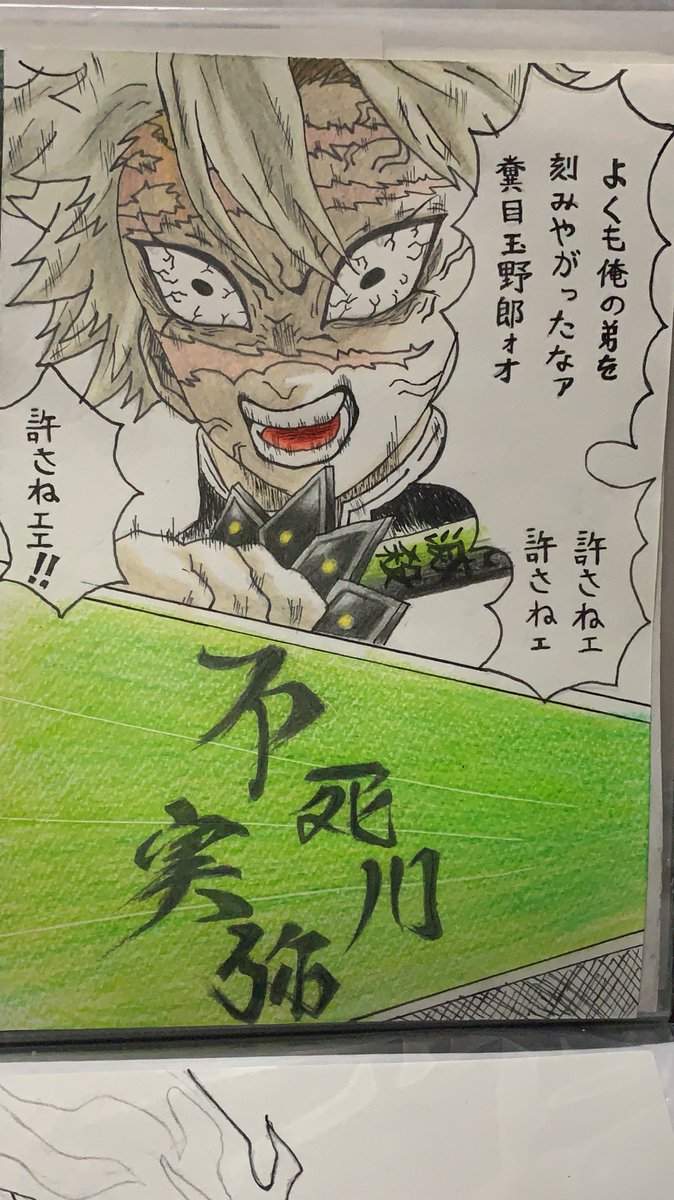 よくも俺の弟を
刻みやがったなァ
糞目玉野郎ォオ
許さねェ
許さねェ
許さねェエ!!
滅殺
不死川
実弥